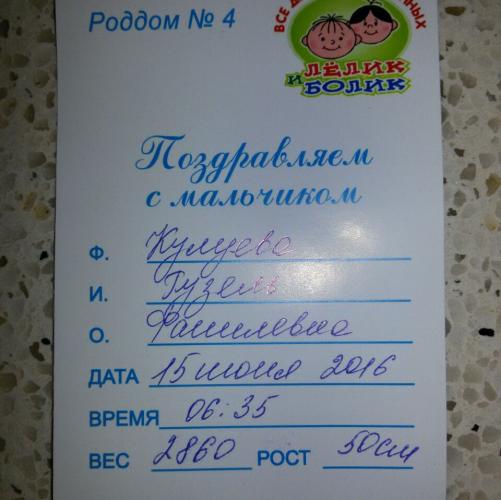 Роддом № 4
ВСЕ Д
ННЫХ
ЛЁЛИК
И БОЛИК
Поздравляем
с мальчиком
Ф. Кулуева
И. Гузель
О. Фанилевна
ДАТА 15 июня 2016
ВРЕМЯ 06:35
ВЕС 2860 РОСТ 50см